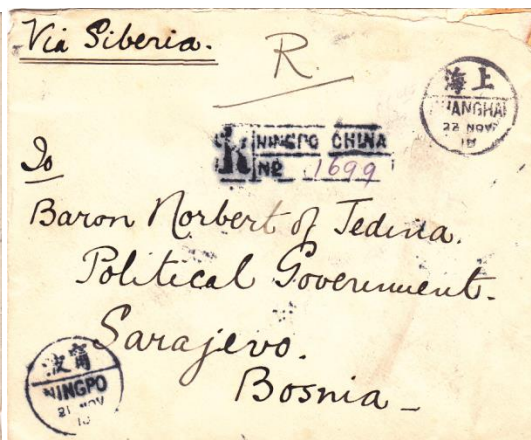 Via Siberia.
R.
海上
SHANGHAI
22 NOV
10
R NINGPO CHINA
No 1699
To
Baron Norbert of Tedina.
Political Government.
Sarajevo.
Bosnia -
波甯
NINGPO
21 NOV
10